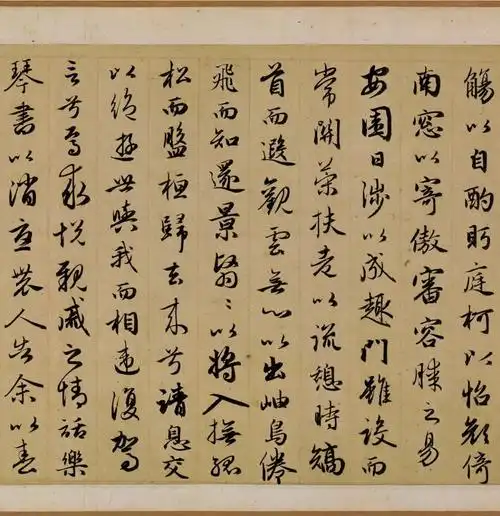 觴以自酌眄庭柯以怡顏倚
南窓以寄傲審容膝之易
安園日涉以成趣門雖設而
常關策扶老以流憩時矯
首而遐觀雲無心以出岫鳥倦
飛而知還景翳〻以將入撫孤
松而盤桓歸去来兮請息交
以絕遊世與我而相違復駕
言兮焉求悅親戚之情話樂
琴書以消憂農人告余以春